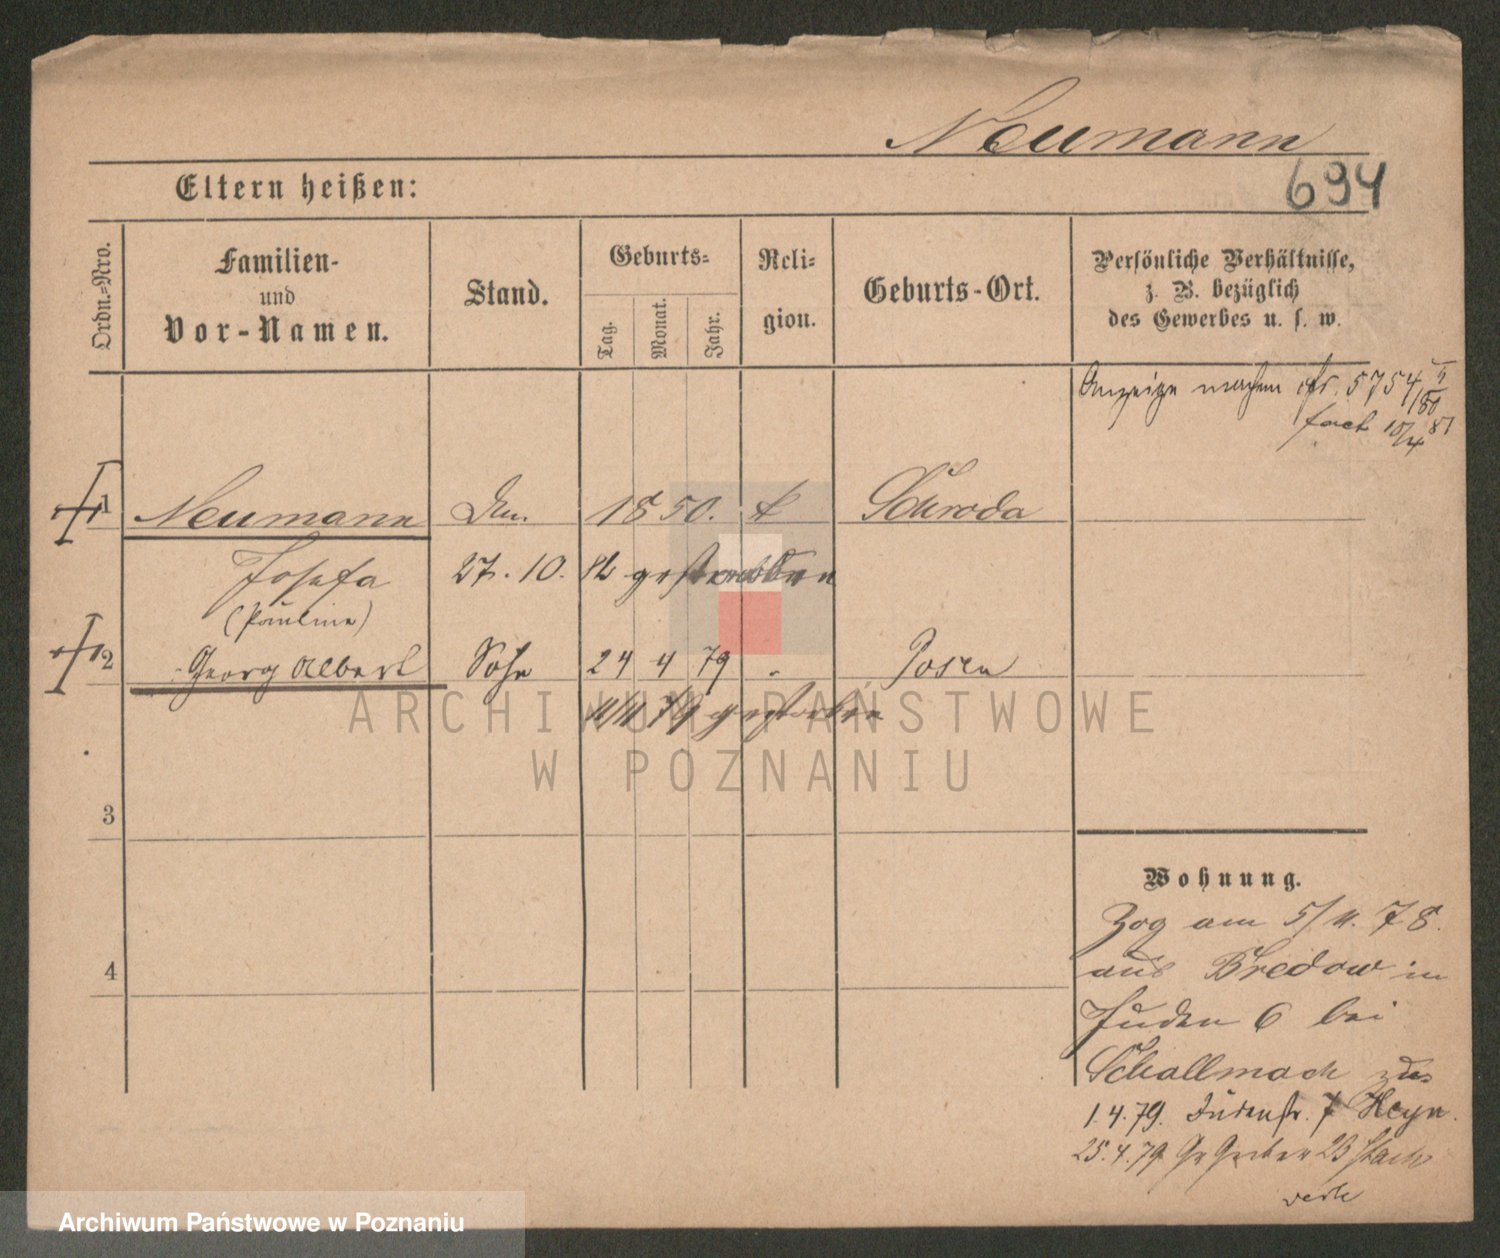 Neumann
694
Eltern heißen:
Ordn.-Nro.
Familien-
und
Vor-Namen.
Stand.
Geburts-
Tag.
Monat.
Jahr.
Reli-
gion.
Geburts-Ort.
Persönliche Verhältnisse,
z. B. bezüglich
des Gewerbes u. s. w.
Anzeige machen cfr. 5754
fact 10/4 81
1 Neumann 1850. k Schroda
Josefa 27. 10. 82 gestorben
(Pauline)
2 Georg Albert Sohn 24 4 79 Posen
11/11 79 gestorben
3
4
Wohnung.
Zog am 5/11. 78.
aus Bredow in
Juden 6 bei
Schallmach
1.4.79. Judenstr. 7 Heyn.
25.4.79 Gr Gerber 23
ARCHIWUM PAŃSTWOWE
W POZNANIU
Archiwum Państwowe w Poznaniu